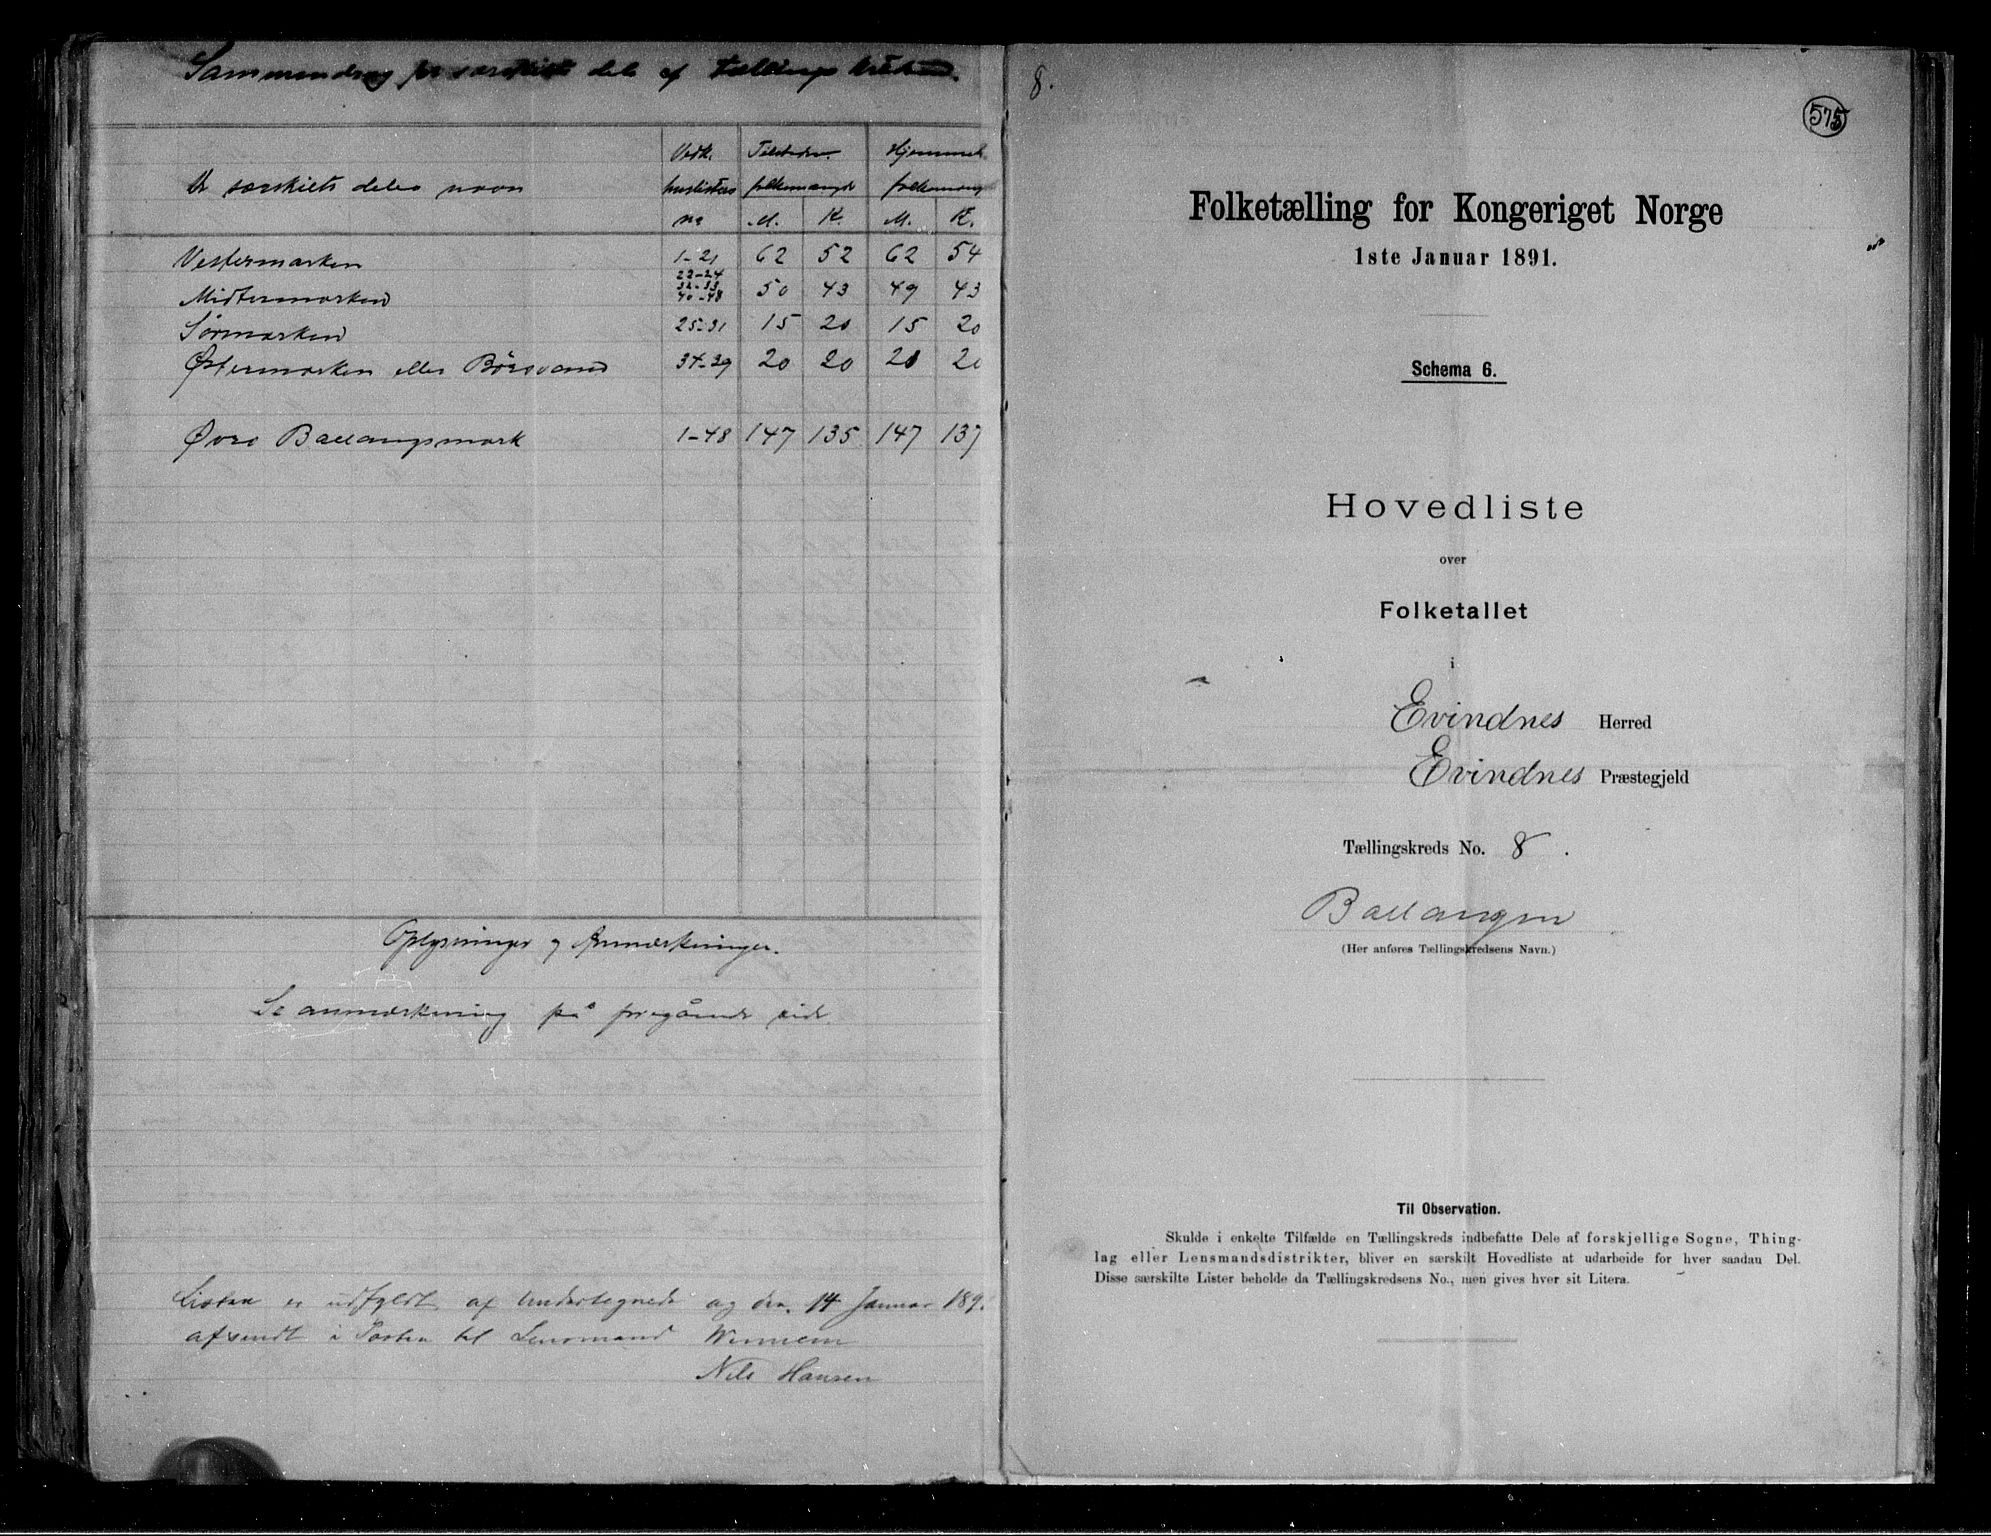 Sammendrag for særskilt del af tællings kredsen.
Vedk. Tilstedev. Hjemmeh.
De særskilte deles navn huslisters folkemængde folkemæng
no M. K. M. K.
Vestermarken 1-21 62 52 62 54
22-24
Midtermarken 32-33 50 43 49 43
40-48
Sørmarken 25-31 15 20 15 20
Østermarken eller Børsvand 34-39 20 20 21 20
Øvre Ballangsmark 1-48 147 135 147 137
Oplysninger og Anmærkninger.
Se anmærkning på foregående side.
Listen er udfyldt af Undertegnede og den 14 Januar 189
afsendt i Posten til Lensmand Winnem
Nils Hansen
8.
575
Folketælling for Kongeriget Norge
1ste Januar 1891.
Schema 6.
Hovedliste
over
Folketallet
i
Evindnes Herred
Evindnes Præstegjeld
Tællingskreds No. 8.
Ballangen
(Her anføres Tællingskredsens Navn.)
Til Observation.
Skulde i enkelte Tilfælde en Tællingskreds indbefatte Dele af forskjellige Sogne, Thing-
lag eller Lensmandsdistrikter, bliver en særskilt Hovedliste at udarbeide for hver saadan Del.
Disse særskilte Lister beholde da Tællingskredsens No., men gives hver sit Litera.